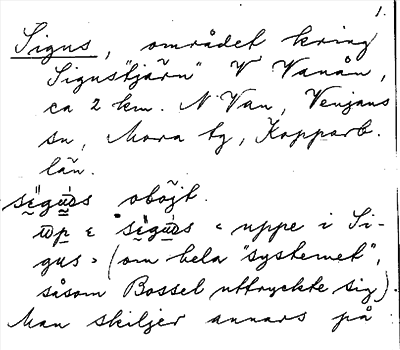 1.
Sigus, området kring
Sigustjärn V Vanån,
ca 2 km. N Van, Venjans
sn, Mora tg, Kopparb.
län.
obőjt.
uppe i Si-
gus" (om hela "systemet",
såsom Bossel uttryckte sig).
Man skiljer annars på